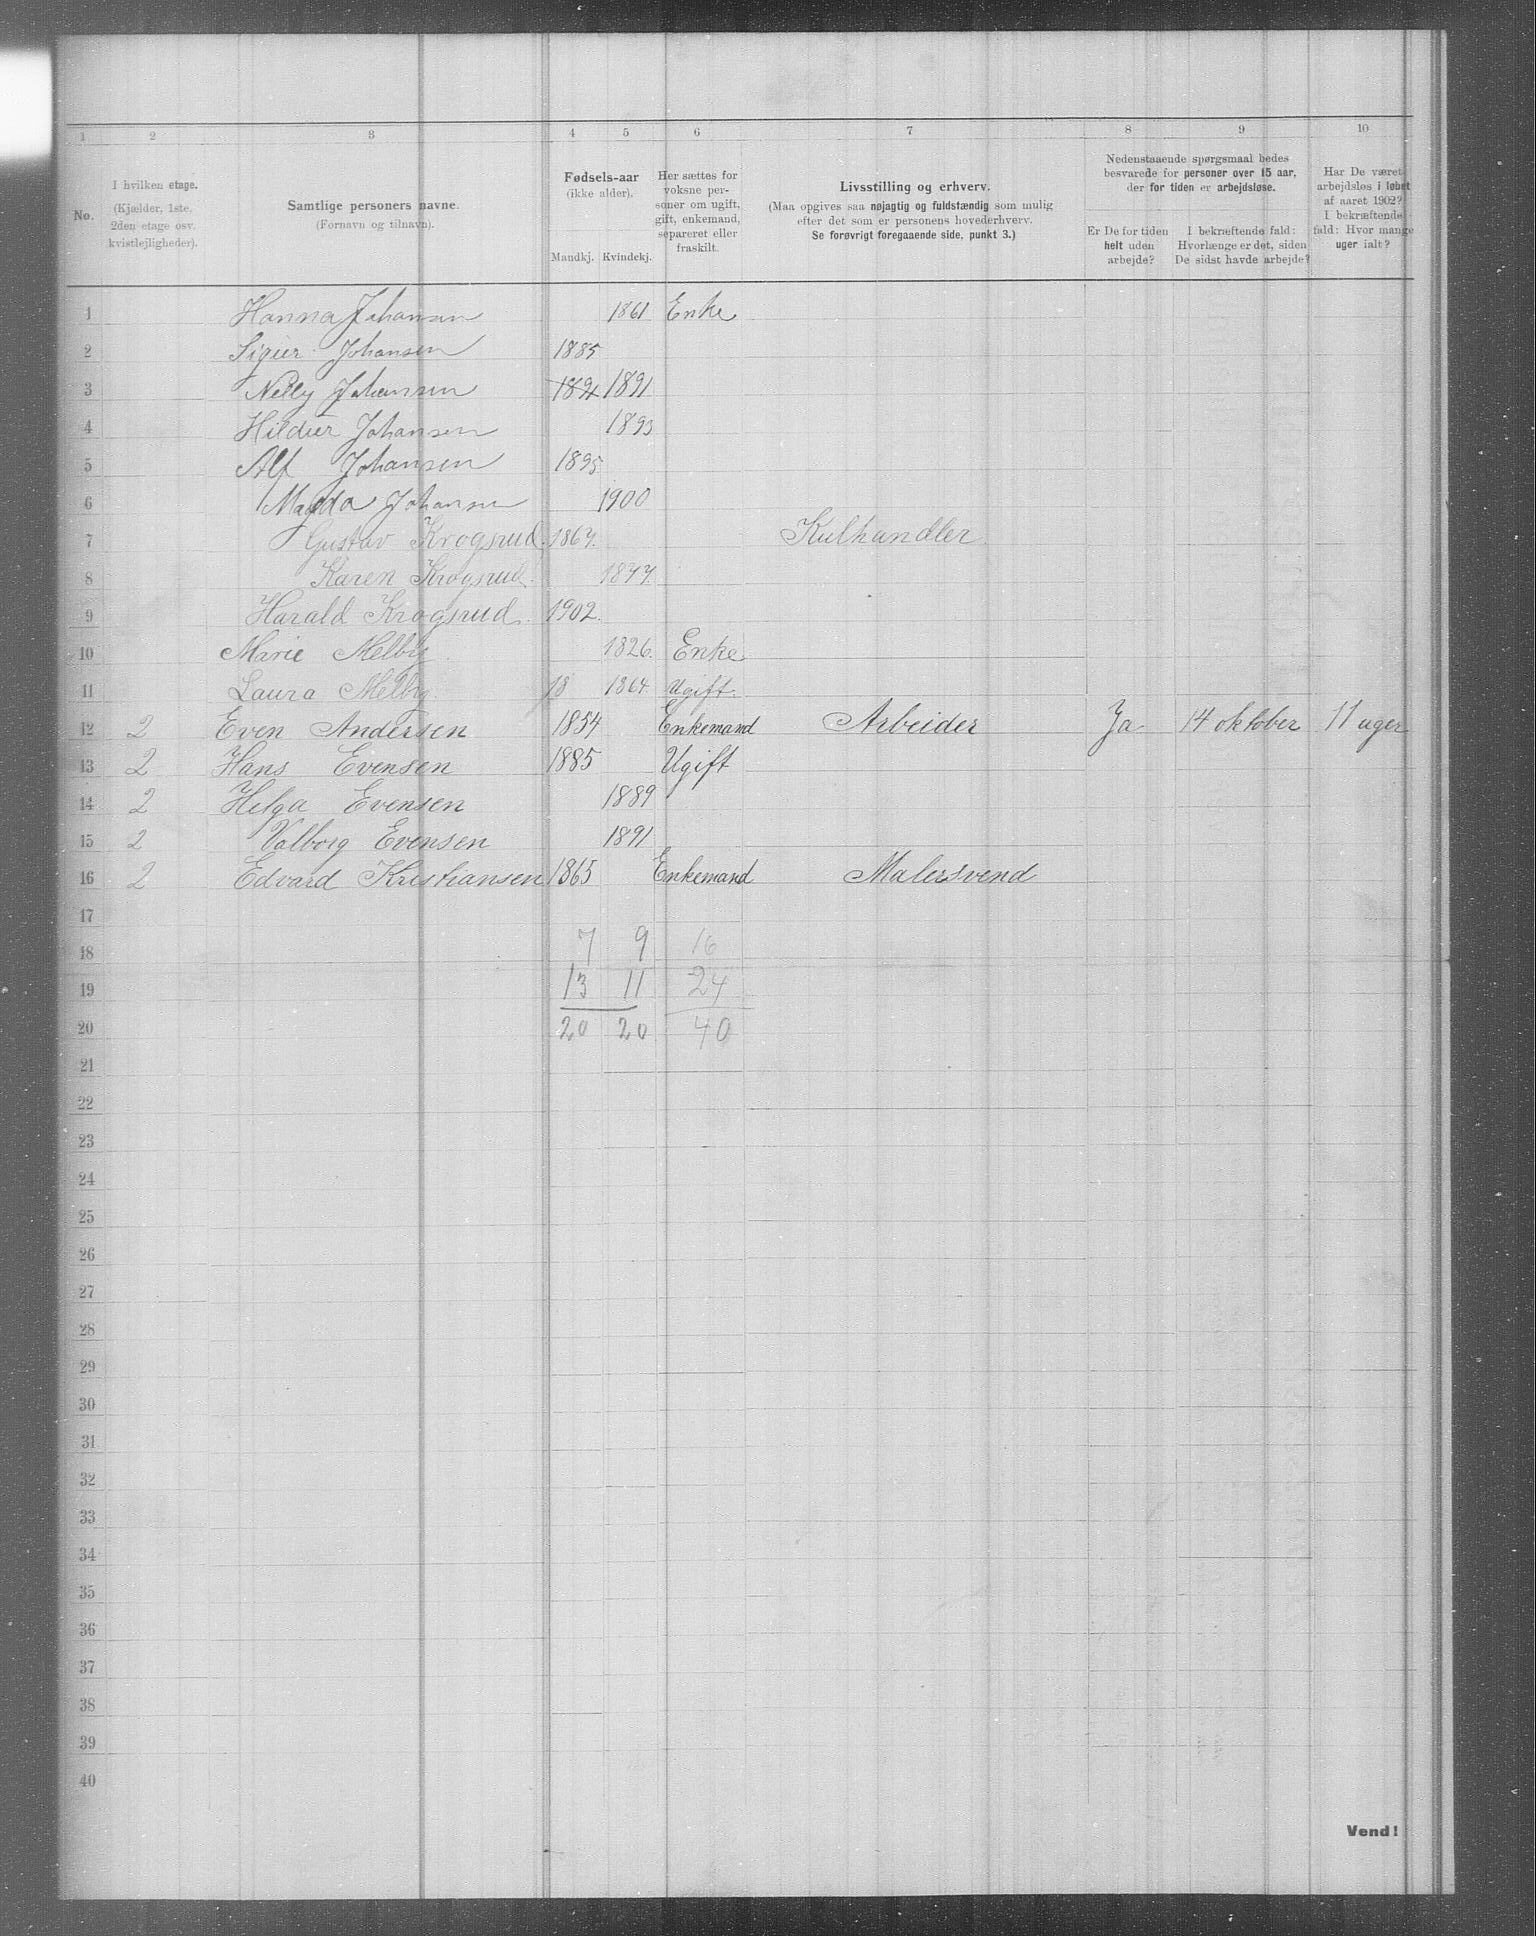 1 2 3 4 5 6 7 8 9 10
No.
I hvilken etage.
(Kjælder, 1ste.
2den etage osv.
kvistlejligheder).
Samtlige personers navne.
(Fornavn og tilnavn).
Fødsels-aar
(ikke alder).
Mandkj. Kvindekj.
Her sættes for
voksne per-
soner om ugift,
gift, enkemand,
separeret eller
fraskilt.
Livsstilling og erhverv.
(Maa opgives saa nøjagtig og fuldstændig som mulig
efter det som er personens hovederhverv.
Se forøvrigt foregaaende side, punkt 3.)
Nedenstaaende spørgsmaal bedes
besvarede for personer over 15 aar,
der for tiden er arbejdsløse.
Er De for tiden
helt uden
arbejde?
I bekræftende fald:
Hvorlænge er det, siden
De sidst havde arbejde?
Har De været
arbejdsløs i løbet
af aaret 1902?
I bekræftende
fald: Hvor mange
uger ialt?
1 Hanna Johansen 1861 Enke
2 Johansen 1885
3 Nelly Johansen 1891 1891
4 Johansen 1893
5 Alf Johansen 1895
6 Magda Johansen 1900
7 Gustav Krogsrud. 1867. Kulhandler
8 Karen Krogsrud. 1877.
9 Harald Krogsrud. 1902.
10 Marie Melby 1826. Enke
11 Laura Melby. 18 1864 Ugift.
12 2 Even Andersen 1854 Enkemand Arbeider Ja 14 oktober 11 uger
13 2 Hans Evensen 1885 Ugift
14 2 Helga Evensen 1889
15 2 Valborg Evensen 1891
16 2 Edvard Kristiansen 1865 Enkemand Malersvend
17
18 7 9 16
19 13 11 24
20 20 20 40
21
22
23
24
25
26
27
28
29
30
31
32
33
34
35
36
37
38
39
40
Vend!